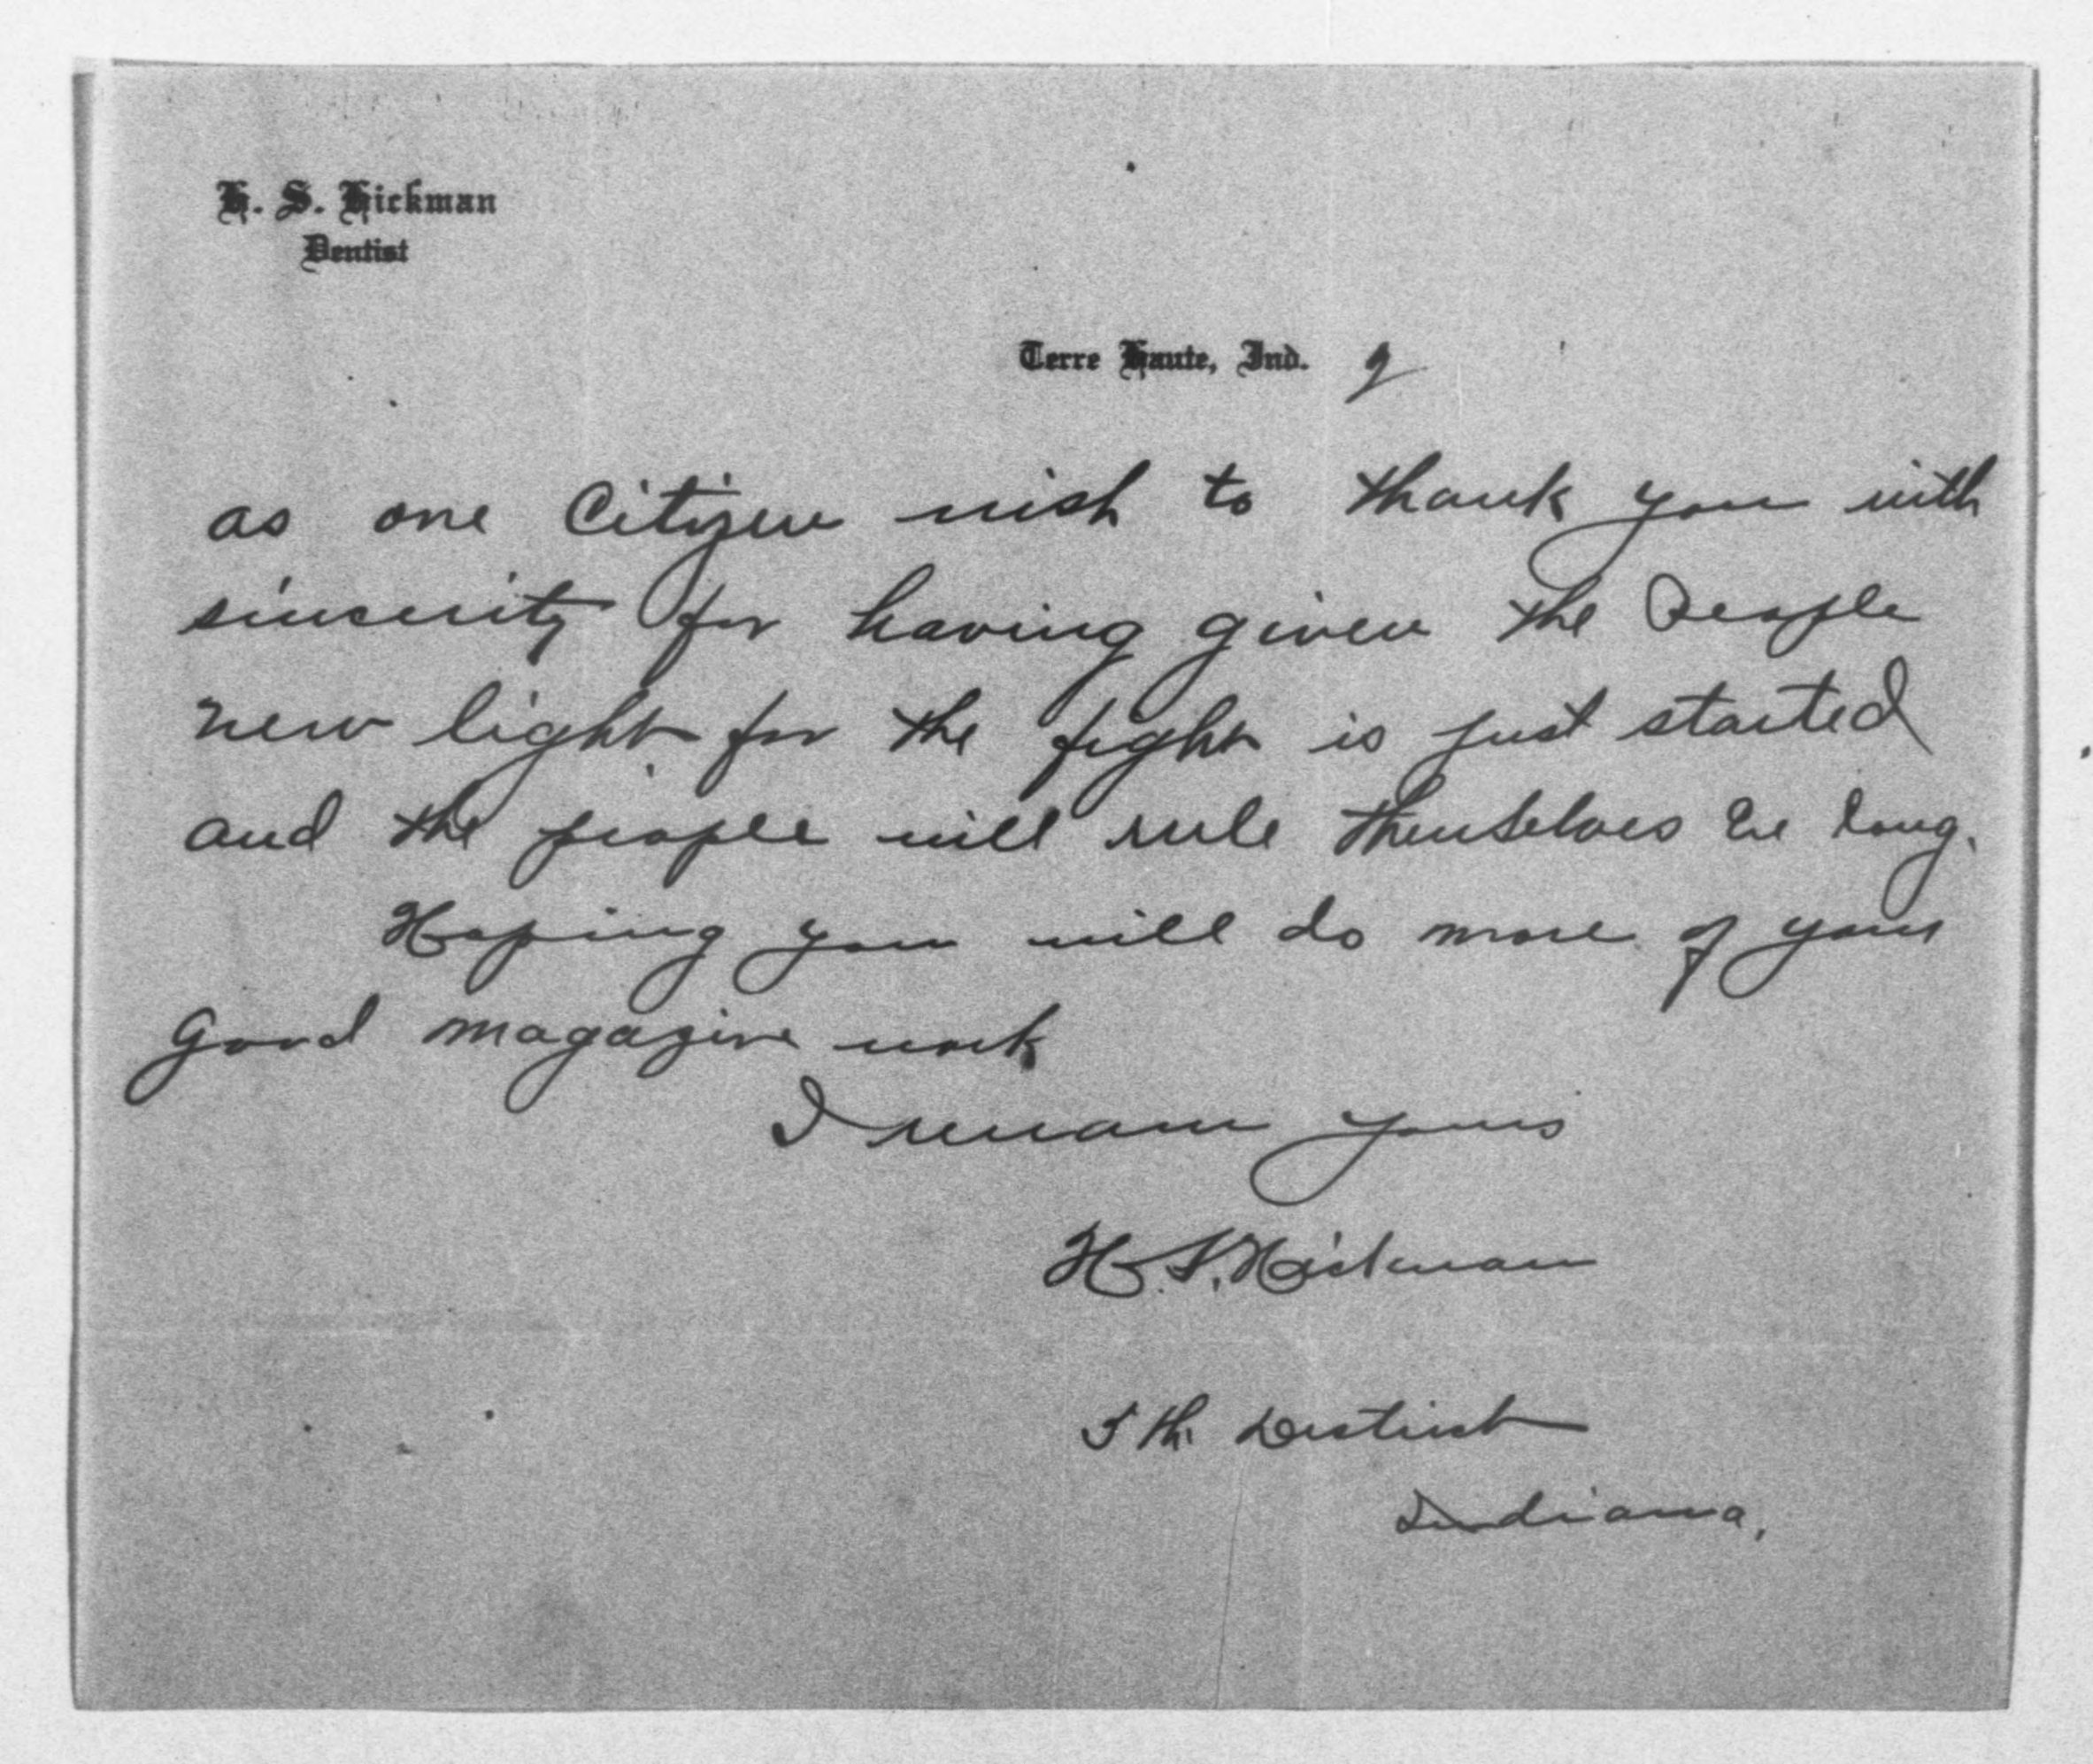 H. S. Hickman
Dentist
Terre Haute, Ind. 2
as one Citizen wish to thank you with
sincerity for having given the People
new light for the fight is just started
and the people will rule themselves ere long.
Hoping you will do more of your
good magazine work
I remain yours
H. S. Hickman
5th. District
Indiana.